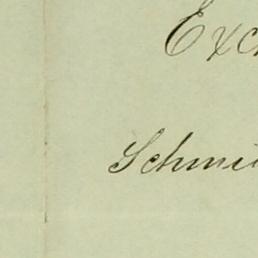 Exc
Schmi